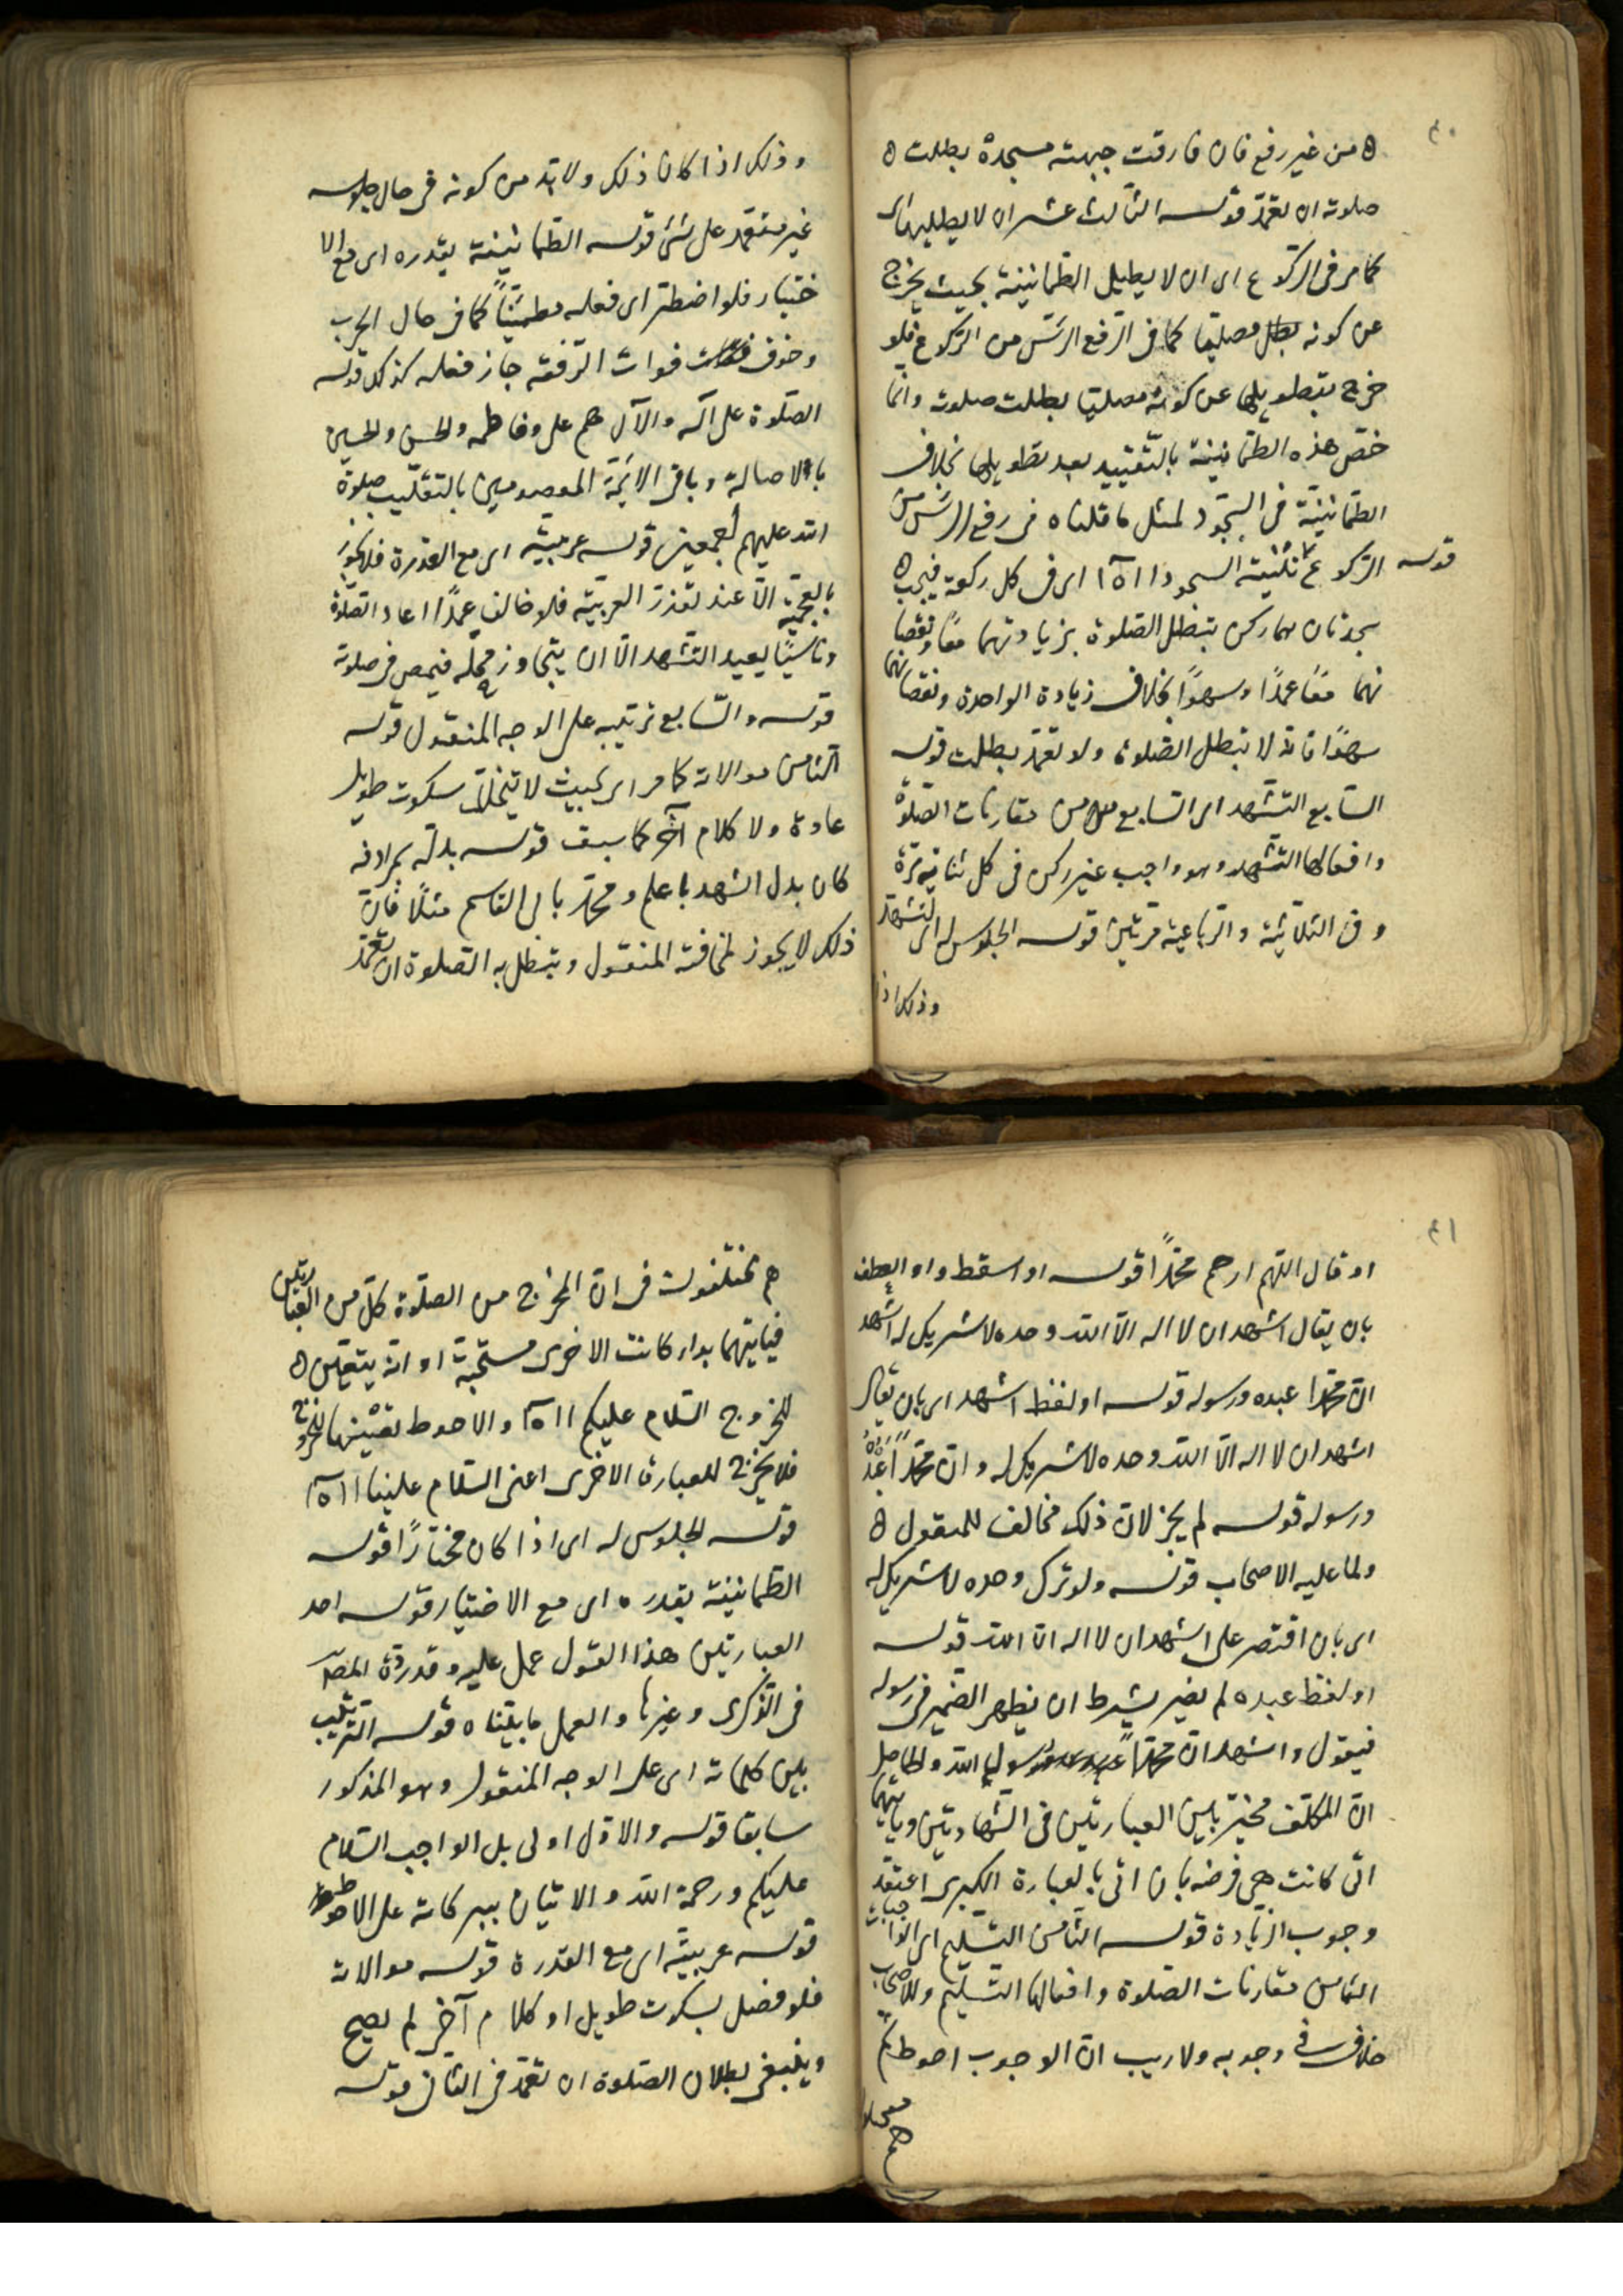 ۴۰
من غير رفع فان فارقت جبهته مسجده بطلت
صلوته ان تعمد قوله الثالث عشر ان لا يطيلها اى
كما مر فى الركوع اى ان لا يطيل الطمانينة بحيث يخرج
عن كونه مصليا كما فى الرفع الرئس من الركوع فلو
خرج بتطويلها عن كونه مصليا بطلت صلوته وانما
خص هذه الطمانينة بالتقييد بعد تطويلها بخلاف
الطمانينة فى السجود لمثل ما قلناه فى رفع الرئس من
الركوع قوله تثنية السجود ااه اى فى كل ركعة فيجب
سجدتان هما ركن تبطل الصلوة بزيادتهما معا ونقصا
نهما معًا عمدًا وسهوًا بخلاف زيادة الواحدة ونقصانها
سهوًا فانه لا تبطل الصلوة ولو تعمد بطلت قوله
السابع التشهد اى السابع من مقارنات الصلوة
وافعالها التشهد وهو واجب غير ركن فى كل ثنائية مرة
وفى الثلاثية والرباعية مرتين قوله الجلوس له اى للتشهد
وذلك اذا
وذلك اذا كان ذلك ولابد من كونه فى حال جلوسه
غير معتمد على شئ قوله الطمانينة بقدره اى مع الا
ختيار فلو اضطر اى فعله مطمئنًا كما فى حال الحرب
وخوف فوات الرفقة جاز فعله كذلك قوله
الصلوة على آله والآل هم على وفاطمه والحسن والحسين
بالاصالة وباقى الائمة المعصومين بالتغليب صلوة
الله عليهم اجمعين قوله عربيته اى مع القدرة فلا يجوز
بالعجمية الا عند تعذر العربية فلو خالف عمدًا اعاد الصلوة
وناسيًا يعيد التشهد الا ان يتجاوز محله فيمضى فى صلوته
قوله والسابع ترتيبه على الوجه المنقول قوله
الثامن موالاته كما مر اى بحيث لا يتخلله سكوت طويل
عادة ولا كلام آخر كما سبق قوله بدله بمرادفه
كان بدل اشهد باعلم ومحمد بابى القاسم مثلًا فان
ذلك لا يجوز لمخالفة المنقول وتبطل به الصلوة ان تعمد
۴۱
او قال اللهم ارحم محمدًا قوله او اسقط واو العطف
بان يقال اشهد ان لا اله الا الله وحده لا شريك له اشهد
ان محمدا عبده ورسوله قوله او لفظ اشهد اى بان يقال
اشهد ان لا اله الا الله وحده لا شريك له وان محمدًا عبده
ورسوله قوله لم يجز لان ذلك مخالف للمنقول
ولما عليه الاصحاب قوله ولو ترك وحده لا شريك له
اى بان اقتصر على اشهد ان لا اله الا الله قوله
او لفظ عبده لم يضر بشرط ان يظهر الضمير فى رسوله
فيقول واشهد ان محمدًا رسول الله والحاصل
ان المكلف مخير بين العبارتين فى الشهادتين وبايتهما
اتى كانت هى فرضه بان اتى بالعبارة الكبرى اعتقد
وجوب الزيادة قوله الثامن التسليم اى الواجبات
الثامن مقارنات الصلوة وافعالها التسليم وللاصحاب
خلاف فى وجوبه ولا ريب ان الوجوب احوط ثم
هم
هم مختلفون فى ان المخرج من الصلوة كل من العبارتين
فبايتهما بدا كانت الاخرى مستحبة او انه يتعين
للخروج السلام عليكم ااه والاحوط تعينها للخروج
فلا يخرج للعبارة الاخرى اعنى السلام علينا ااه
قوله الجلوس له اى اذا كان مختارًا قوله
الطمانينة بقدره اى مع الاختيار قوله احد
العبارتين هذا القول عمل عليه وقد رده المص
فى الذكرى وغيرها والعمل ما بيناه قوله الترتيب
بين كلماته اى على الوجه المنقول وهو المذكور
سابقا قوله والاول اولى بل الواجب السلام
عليكم ورحمة الله والاتيان ببركاته على الاحوط
قوله عربيته اى مع القدرة قوله موالاته
فلو فصل بسكوت طويل او كلام آخر لم يصح
وينبغى بطلان الصلوة ان تعمد فى الثانى قوله